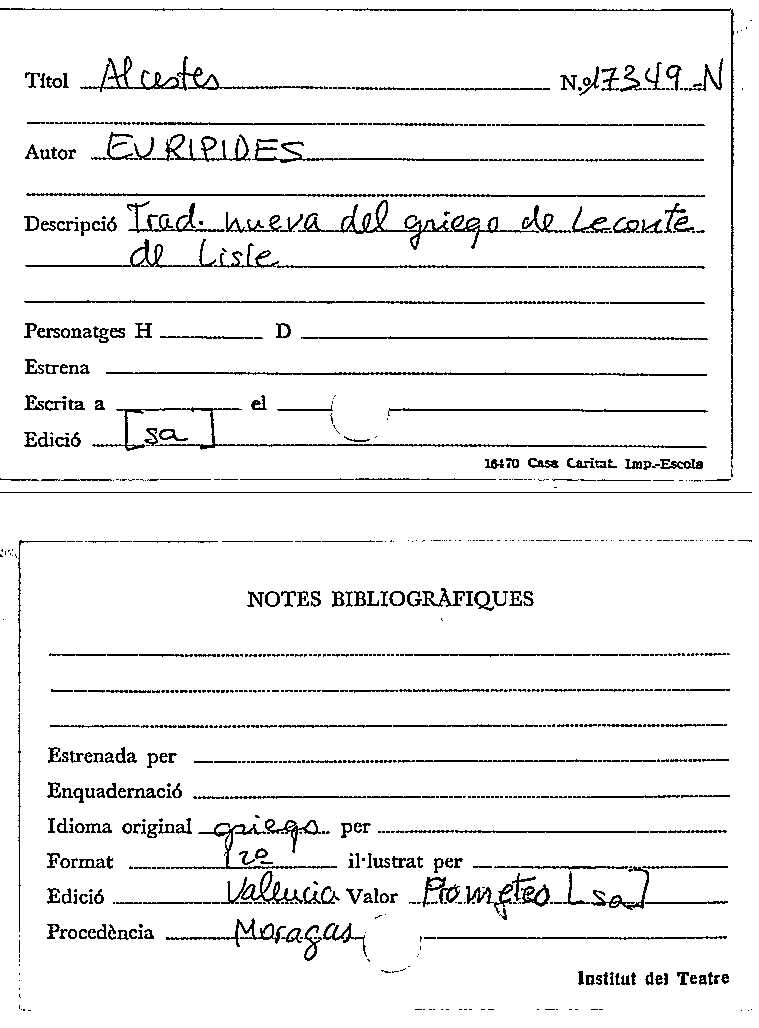 Títol Alcestes N.º 17349-N
Autor EURIPIDES
Descripció Trad. nueva del griego de Leconte
de Lisle
Personatges H D
Estrena
Escrita a el
Edició [sa]
16470 Casa Caritat. Imp.-Escola
NOTES BIBLIOGRÀFIQUES
Estrenada per
Enquadernació
Idioma original griego per
Format 12º il·lustrat per
Edició Valencia Valor Prometeo [sa]
Procedència Moragas
Institut del Teatre